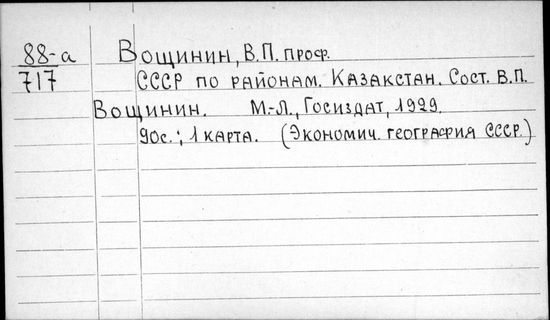 88-а Вощинин, В.П. проф.
717 СССР по районам. Казакстан. Сост. В.П.
Вощинин. М.-Л., Госиздат, 1929.
90с.; 1 карта. (Экономич. география СССР.)